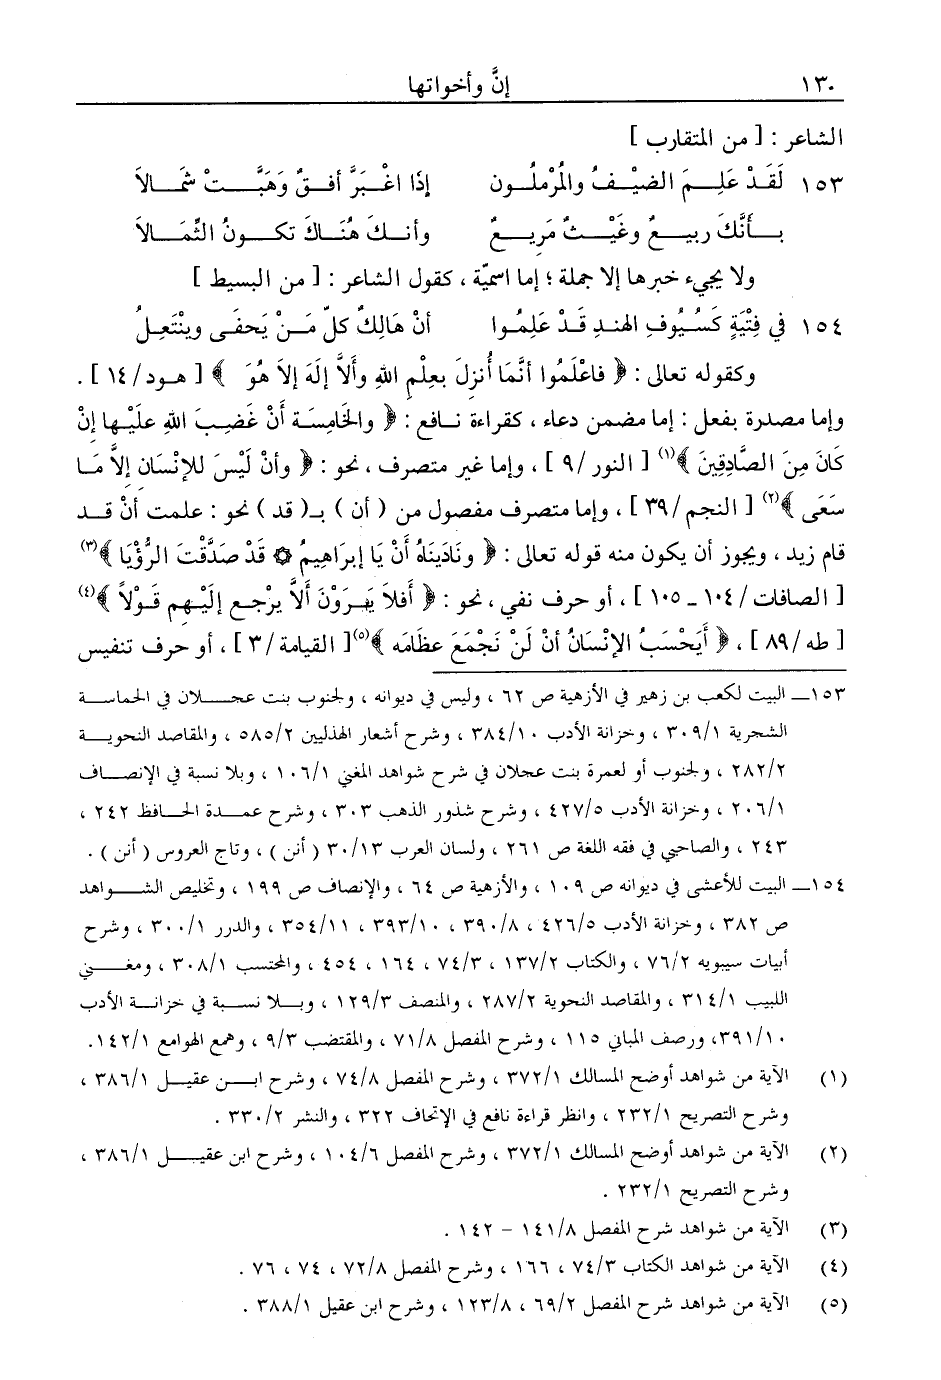 ١٣٠ إنَّ وأخواتها
الشاعر : [ من المتقارب ]
١٥٣ لَقَدْ عَلِمَ الضيْفُ والمُرْمِلُون إذَا اغْبَرَّ أفقٌ وَهَبَّتْ شَمَالاَ
بأَنَّكَ ربيعٌ وغَيْثٌ مَرِيعٌ وأنكَ هُنَاكَ تكونُ الثِّمَالاَ
ولا يجيء خبرها إلا جملة ؛ إما اسميّة ، كقول الشاعر : [ من البسيط ]
١٥٤ في فِتْيَةٍ كَسُيُوفِ الهندِ قَدْ عَلِمُوا أنْ هَالِكٌ كلّ مَنْ يَحفَى وينْتَعِلُ
وكقوله تعالى : ﴿ فاعْلَمُوا أنَّمَا أُنزلَ بعِلْمِ اللهِ وأَلاَّ إلَهَ إلاَ هُوَ ﴾ [ هود/١٤ ] .
وإما مصدرة بفعل : إما مضمن دعاء ، كقراءة نافع : ﴿ والخَامِسَة أنْ غَضِبَ اللهُ علَيْها إنْ
كَانَ مِنَ الصَّادِقِينَ ﴾(١) [ النور/٩ ] ، وإما غير متصرف ، نحو : ﴿ وأنْ لَيْسَ للإنْسَان إلاَّ مَا
سَعَى ﴾(٢) [ النجم/٣٩ ] ، وإما متصرف مفصول من ( أن ) بـ( قد ) نحو : علمت أنْ قد
قام زيد ، ويجوز أن يكون منه قوله تعالى : ﴿ ونَادَينَاهُ أنْ يَا إبرَاهِيمُ ۞ قَدْ صَدَّقْتَ الرُّؤْيَا ﴾(٣)
[ الصافات/١٠٤ ـ ١٠٥ ] ، أو حرف نفي ، نحو : ﴿ أفَلاَ يَرَوْنَ ألاَّ يرْجعُ إلَيْهِم قَوْلاً ﴾(٤)
[ طه/٨٩ ] ، ﴿ أَيَحْسَبُ الإنْسَانُ أنْ لَنْ نَجْمَعَ عظَامَه ﴾(٥)[ القيامة/٣ ] ، أو حرف تنفيس
١٥٣ــ البيت لكعب بن زهير في الأزهية ص ٦٢ ، وليس في ديوانه ، ولجنوب بنت عجلان في الحماسة
الشجرية ٣٠٩/١ ، وخزانة الأدب ٣٨٤/١٠ ، وشرح أشعار الهذليين ٥٨٥/٢ ، والمقاصد النحوية
٢٨٢/٢ ، ولجنوب أو لعمرة بنت عجلان في شرح شواهد المغني ١٠٦/١ ، وبلا نسبة في الإنصاف
٢٠٦/١ ، وخزانة الأدب ٤٢٧/٥ ، وشرح شذور الذهب ٣٠٣ ، وشرح عمدة الحافظ ٢٤٢ ،
٢٤٣ ، والصاحبي في فقه اللغة ص ٢٦١ ، ولسان العرب ٣٠/١٣ ( أنن ) ، وتاج العروس ( أنن ) .
١٥٤ــ البيت للأعشى في ديوانه ص ١٠٩ ، والأزهية ص ٦٤ ، والإنصاف ص ١٩٩ ، وتخليص الشواهد
ص ٣٨٢ ، وخزانة الأدب ٤٢٦/٥ ، ٣٩٠/٨ ، ٣٩٣/١٠ ، ٣٥٤/١١ ، والدرر ٣٠٠/١ ، وشرح
أبيات سيبويه ٧٦/٢ ، والكتاب ١٣٧/٢ ، ٧٤/٣ ، ١٦٤ ، ٤٥٤ ، والمحتسب ٣٠٨/١ ، ومغني
اللبيب ٣١٤/١ ، والمقاصد النحوية ٢٨٧/٢ ، والمنصف ١٢٩/٣ ، وبلا نسبة في خزانة الأدب
٣٩١/١٠، ورصف المباني ١١٥ ، وشرح المفصل ٧١/٨ ، والمقتضب ٩/٣ ، وهمع الهوامع ١٤٢/١.
(١) الآية من شواهد أوضح المسالك ٣٧٢/١ ، وشرح المفصل ٧٤/٨ ، وشرح ابن عقيل ٣٨٦/١ ،
وشرح التصريح ٢٣٢/١ ، وانظر قراءة نافع في الإتحاف ٣٢٢ ، والنشر ٣٣٠/٢ .
(٢) الآية من شواهد أوضح المسالك ٣٧٢/١ ، وشرح المفصل ١٠٤/٦ ، وشرح ابن عقيل ٣٨٦/١ ،
وشرح التصريح ٢٣٢/١ .
(٣) الآية من شواهد شرح المفصل ١٤١/٨ – ١٤٢ .
(٤) الآية من شواهد الكتاب ٧٤/٣ ، ١٦٦ ، وشرح المفصل ٧٢/٨ ، ٧٤ ، ٧٦ .
(٥) الآية من شواهد شرح المفصل ٦٩/٢ ، ١٢٣/٨ ، وشرح ابن عقيل ٣٨٨/١ .